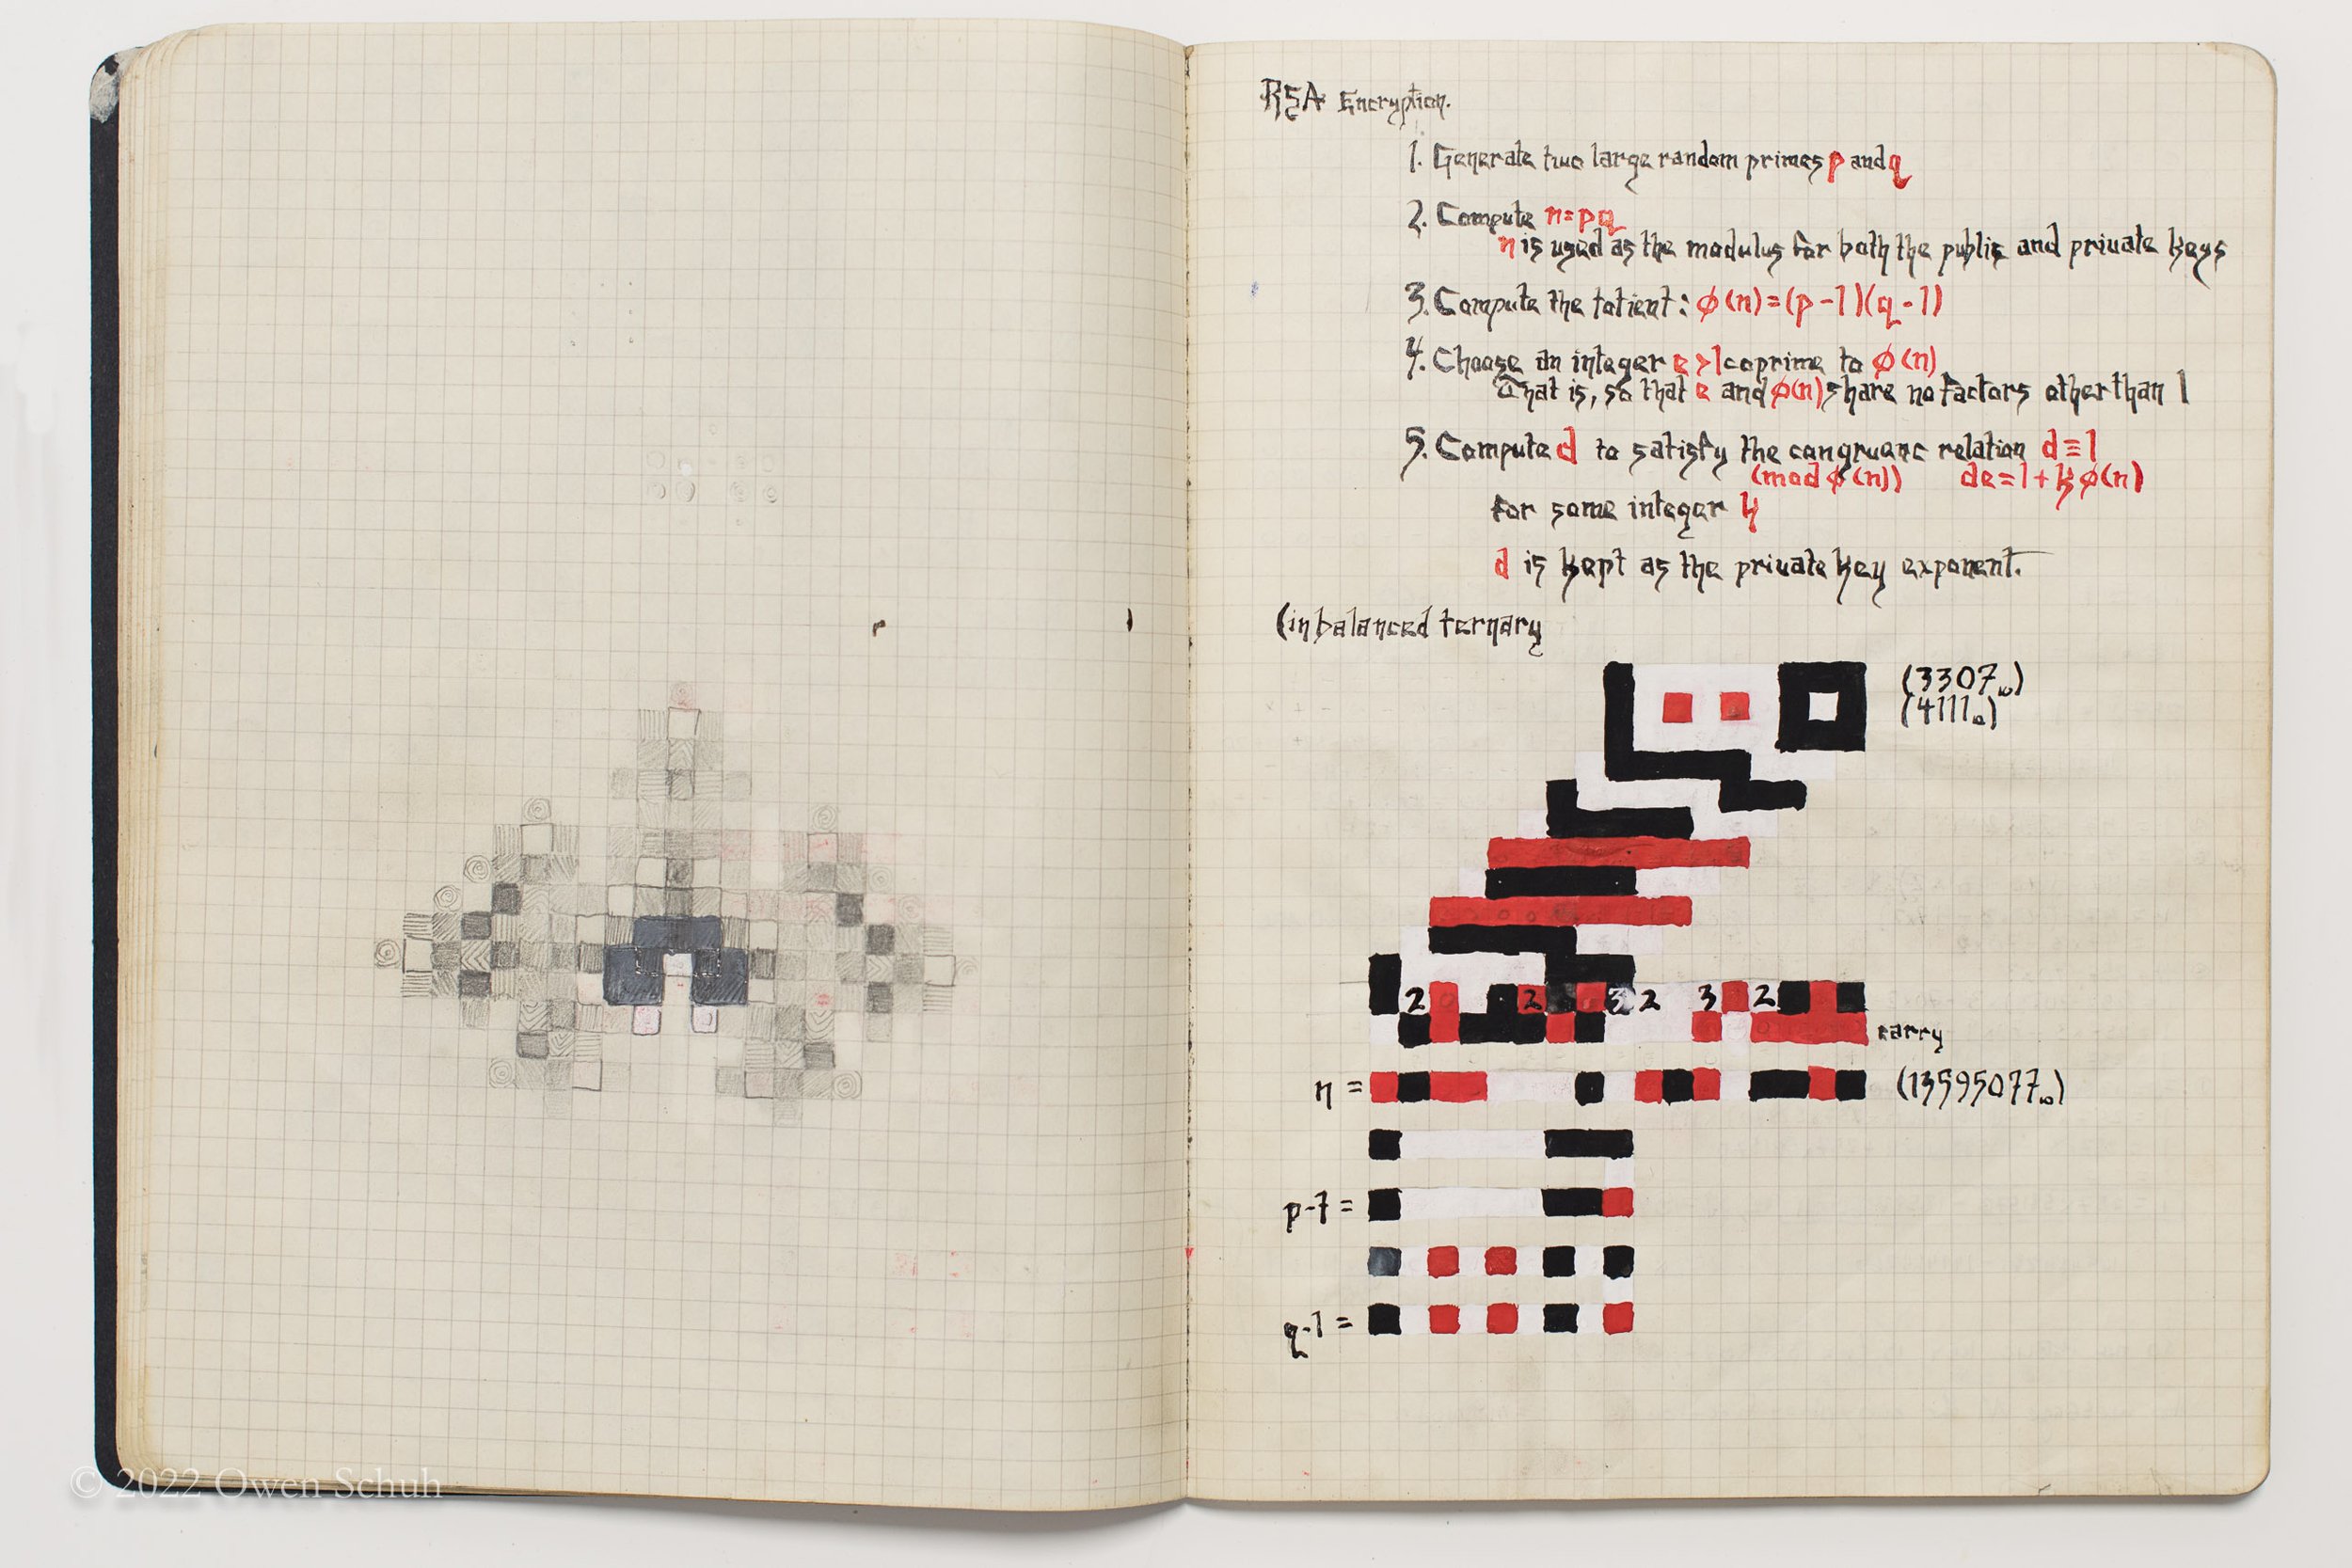 RSA Encryption.
1. Generate two large random primes p and q
2. Compute n=pq
n is used as the modulus for both the public and private keys
3. Compute the totient: φ(n)=(p-1)(q-1)
4. Choose an integer e>1 coprime to φ(n)
That is, so that e and φ(n) share no factors other than 1
5. Compute d to satisfy the congruenc relation d≡1
(mod φ(n)) de=1+kφ(n)
for some integer k
d is kept as the private key exponent.
(in balanced ternary
(3307₁₀)
(4111₁₀)
2 2 2 3 2
carry
n = (13595077₁₀)
p-1 =
q-1 =
© 2022 Owen Schuh